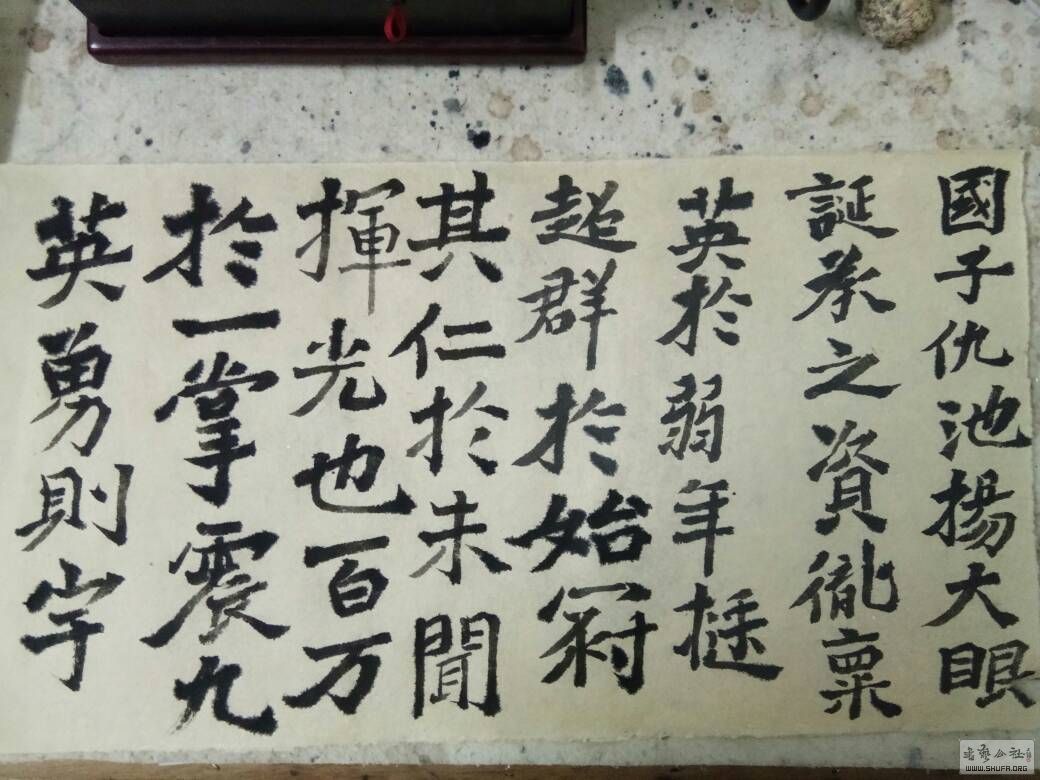 國子仇池揚大眼
誕承之資㣧稟
英於弱年挺
超群於始冠
其仁於未聞
揮光也百万
於一掌震九
英勇則宇
書藝公社
WWW.SHUFA.ORG